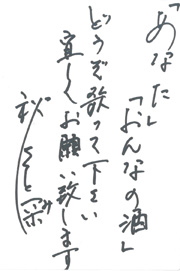 「あなた」
「おんなの酒」
どうぞ歌って下さい
宜しくお願い致します
秋